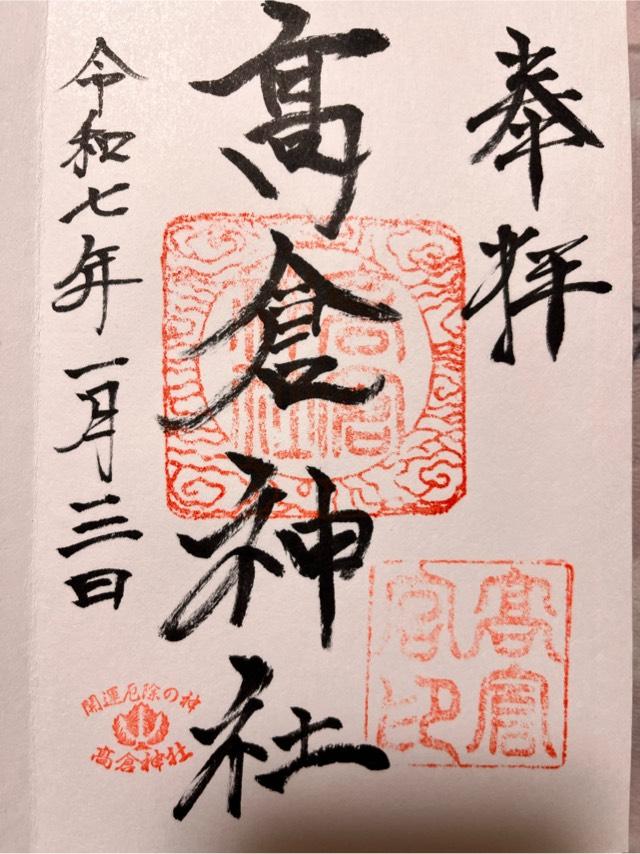 奉拝
髙倉神社
令和七年一月三日
開運厄除の神
高倉神社